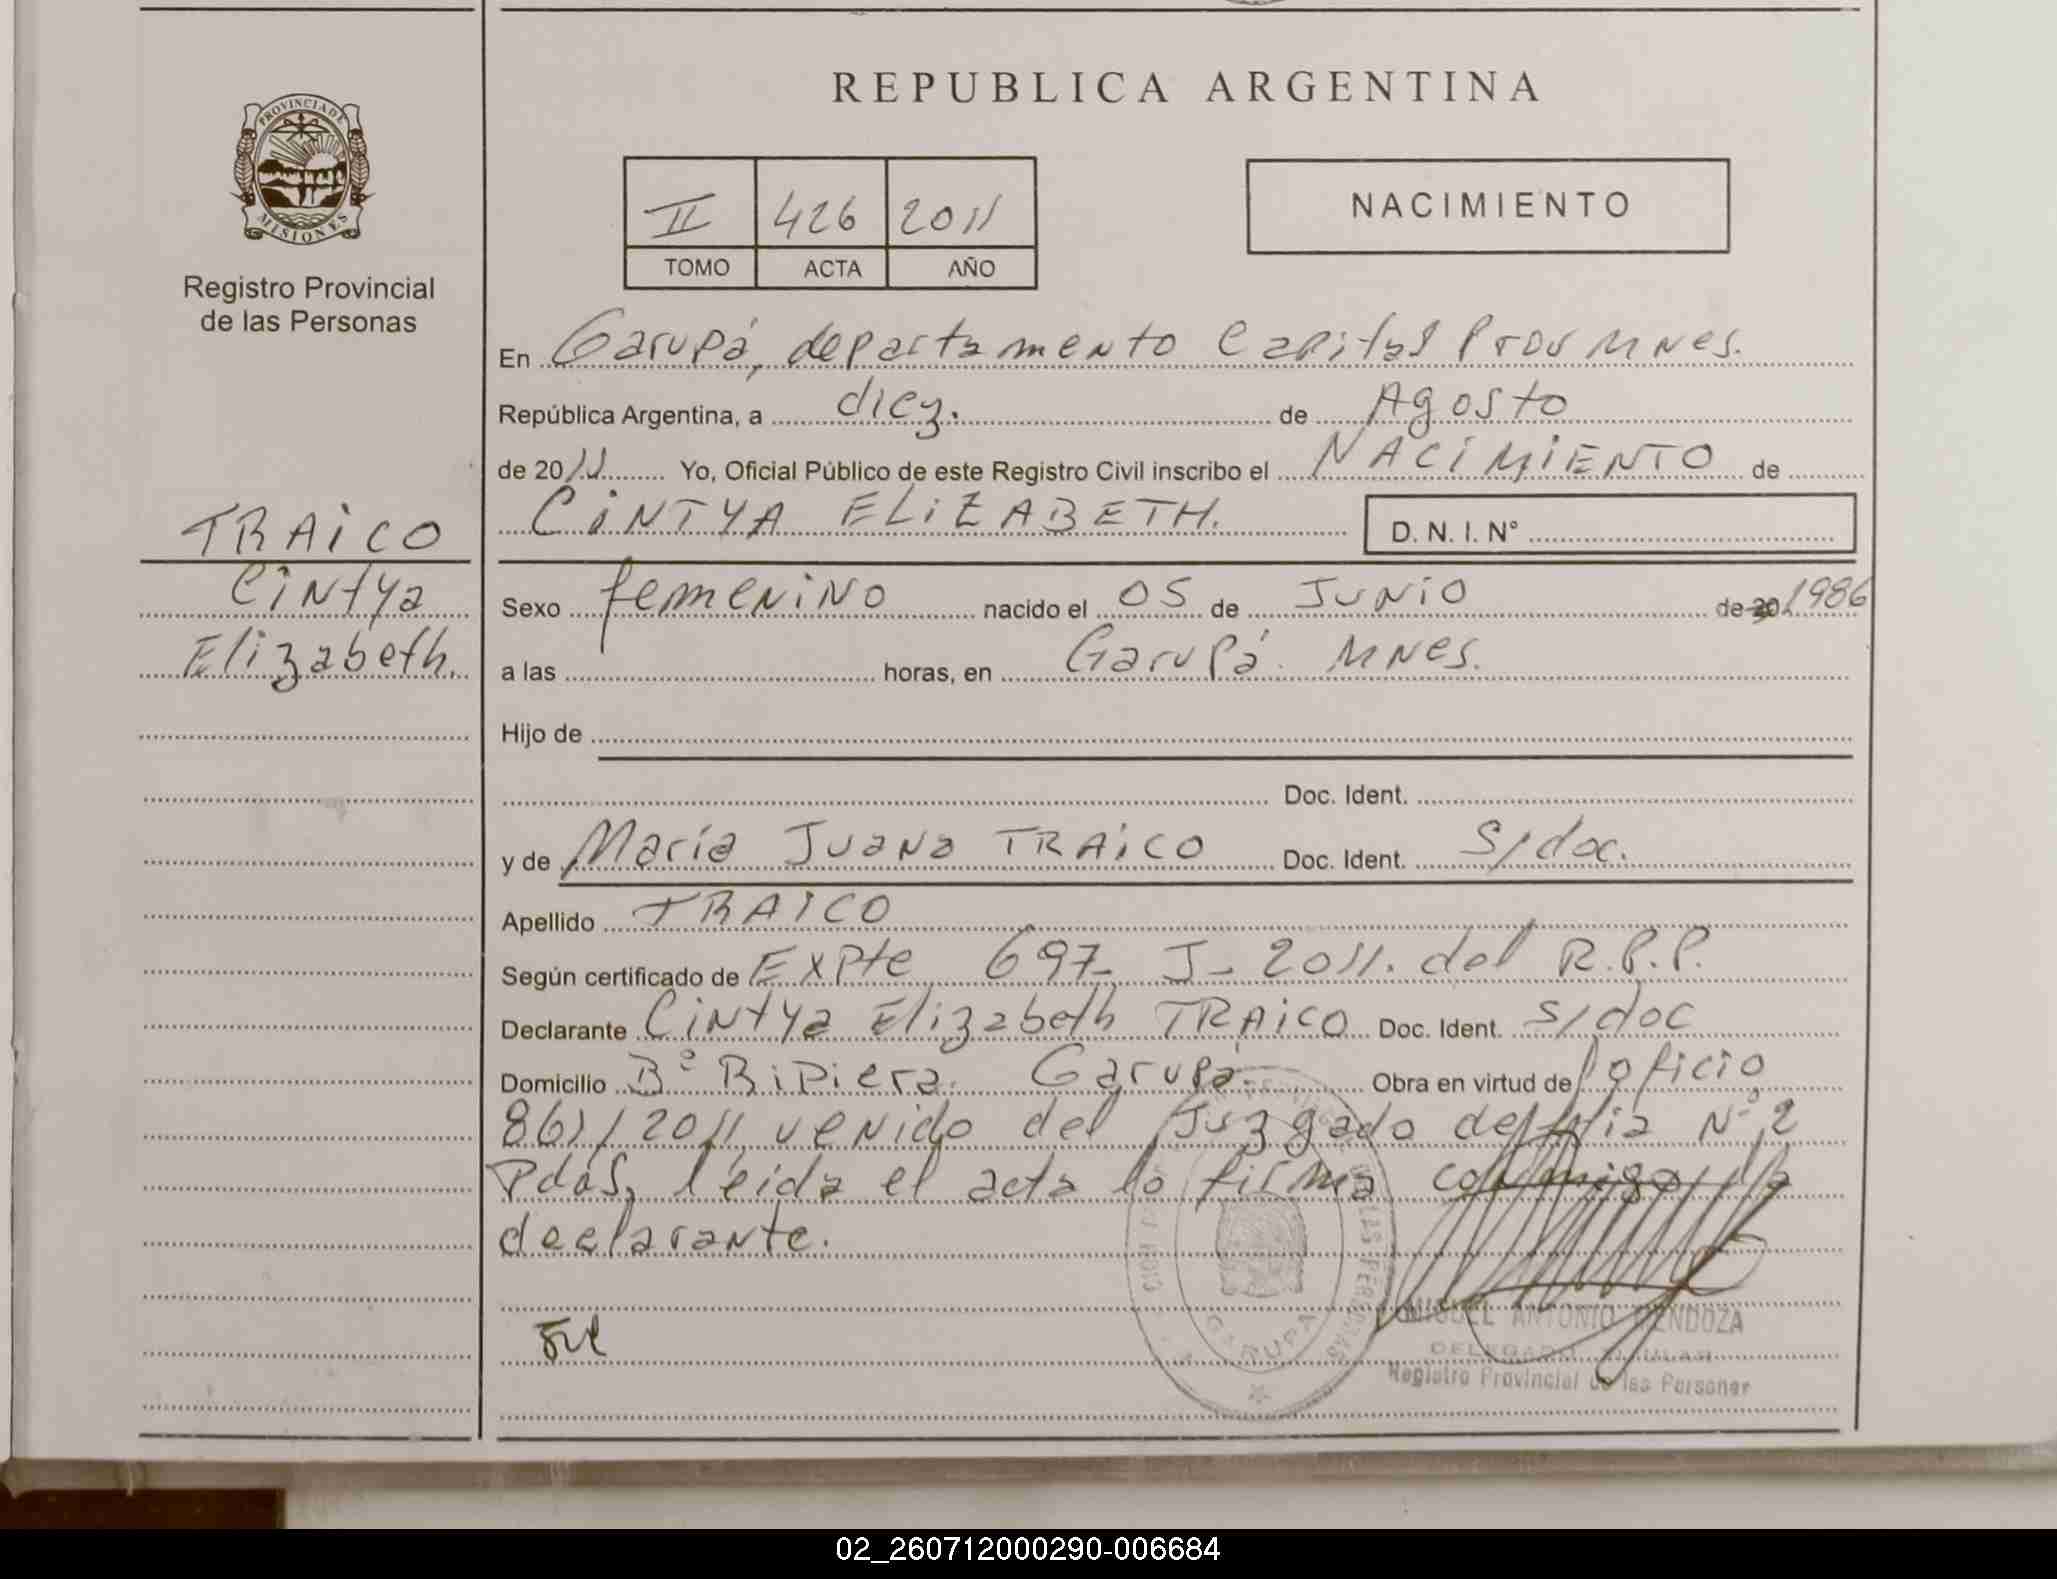 REPUBLICA ARGENTINA
PROVINCIA DE
MISIONES
Registro Provincial
de las Personas
II 426 2011
TOMO ACTA AÑO
NACIMIENTO
En Garupá, departamento Capital Prov Mnes.
República Argentina, a diez. de Agosto
de 2011 Yo, Oficial Público de este Registro Civil inscribo el NACIMIENTO de
CINTYA ELIZABETH. D. N. I. N°
TRAICO
Cintya
Elizabeth.
Sexo femenino nacido el 05 de Junio de 20 1986
a las horas, en Garupá. Mnes.
Hijo de
Doc. Ident.
y de María Juana TRAICO Doc. Ident. S/doc.
Apellido TRAICO
Según certificado de Expte 697- J- 2011. del R.P.P.
Declarante Cintya Elizabeth TRAICO Doc. Ident. S/doc
Domicilio B° Ripiera. Garupá. Obra en virtud de oficio
861/2011 venido del Juzgado de Flia N° 2
Pdas, leida el acta lo firma conmigo la
declarante.
GARUPA
MIGUEL ANTONIO MENDOZA
DELEGADO TITULAR
Registro Provincial de las Personas
02_260712000290-006684